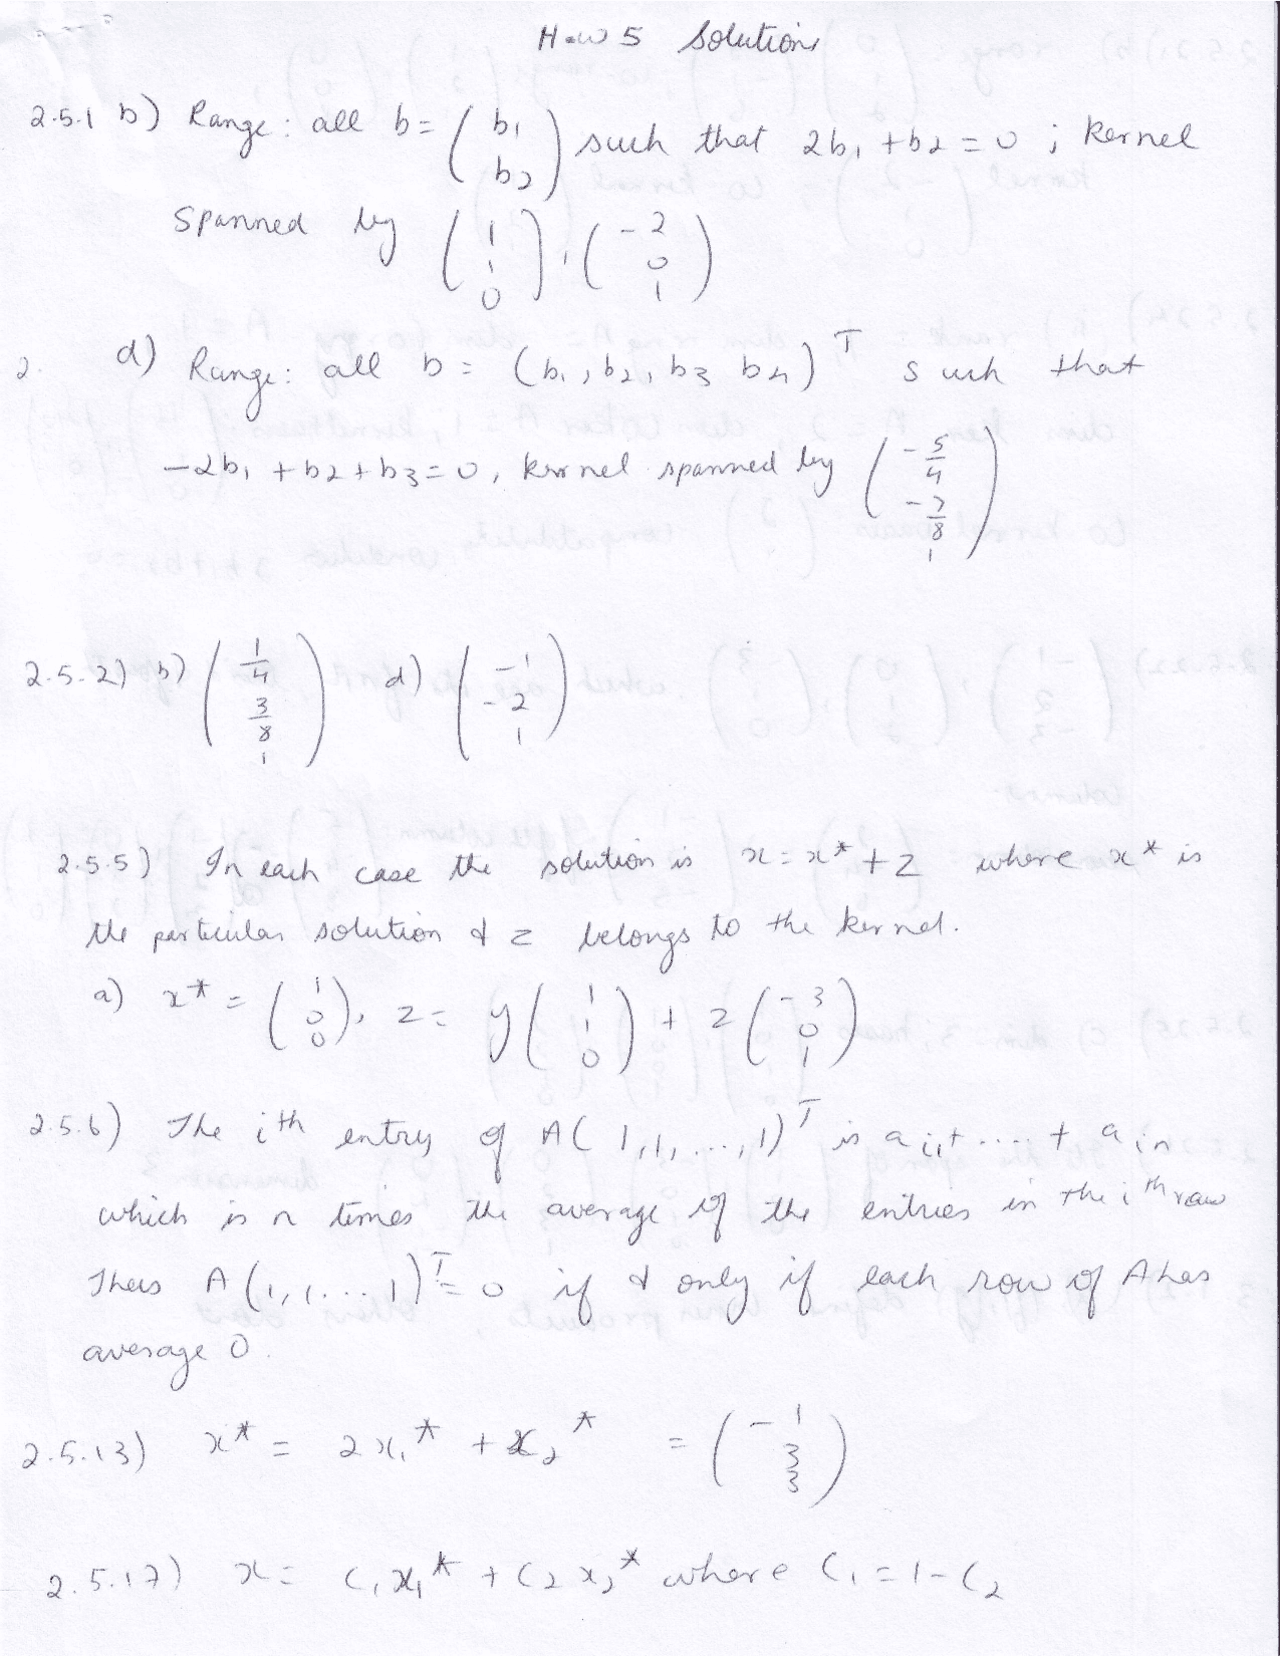 H.W 5 Solutions
2.5.1 b) Range: all b = (b1 b2) such that 2b1 + b2 = 0 ; kernel
spanned by (1 1 0), (-2 0 1)
2. d) Range: all b = (b1, b2, b3 b4)^T such that
-2b1 + b2 + b3 = 0, kernel spanned by (-5/4 -7/8 1)
2.5.2) b) (1/4 3/8 1) d) (-1 -2 1)
2.5.5) In each case the solution is x = x* + z where x* is
the particular solution & z belongs to the kernel.
a) x* = (1 0 0), z = y(1 1 0) + z(-3 0 1)
2.5.6) The ith entry of A(1,1,...,1)^T is ai1+....+ ain
which is n times the average of the entries in the ith row
Thus A(1,1....1)^T = 0 if & only if each row of A has
average 0.
2.5.13) x* = 2x1* + x2* = (-1 3 3)
2.5.17) x = c1x1* + c2x2* where c1 = 1 - c2